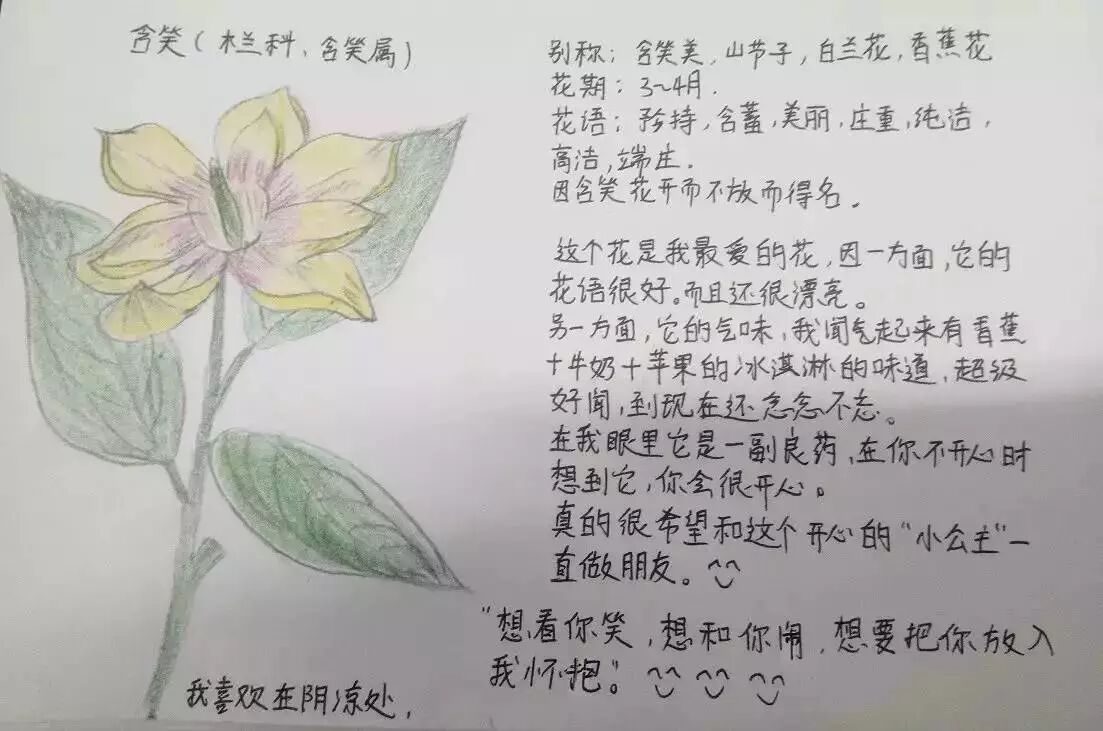 含笑（木兰科、含笑属）
别称：含笑美，山节子，白兰花，香蕉花
花期：3~4月.
花语：矜持，含蓄，美丽，庄重，纯洁，
高洁，端庄.
因含笑花开而不放而得名。
这个花是我最爱的花，因一方面，它的
花语很好。而且还很漂亮。
另一方面，它的气味，我闻气起来有香蕉
+牛奶+苹果的冰淇淋的味道，超级
好闻，到现在还念念不忘。
在我眼里它是一副良药，在你不开心时
想到它，你会很开心。
真的很希望和这个开心的“小公主”一
直做朋友。^^
“想看你笑，想和你闹，想要把你放入
我怀抱”。^^ ^^ ^^
我喜欢在阴凉处，